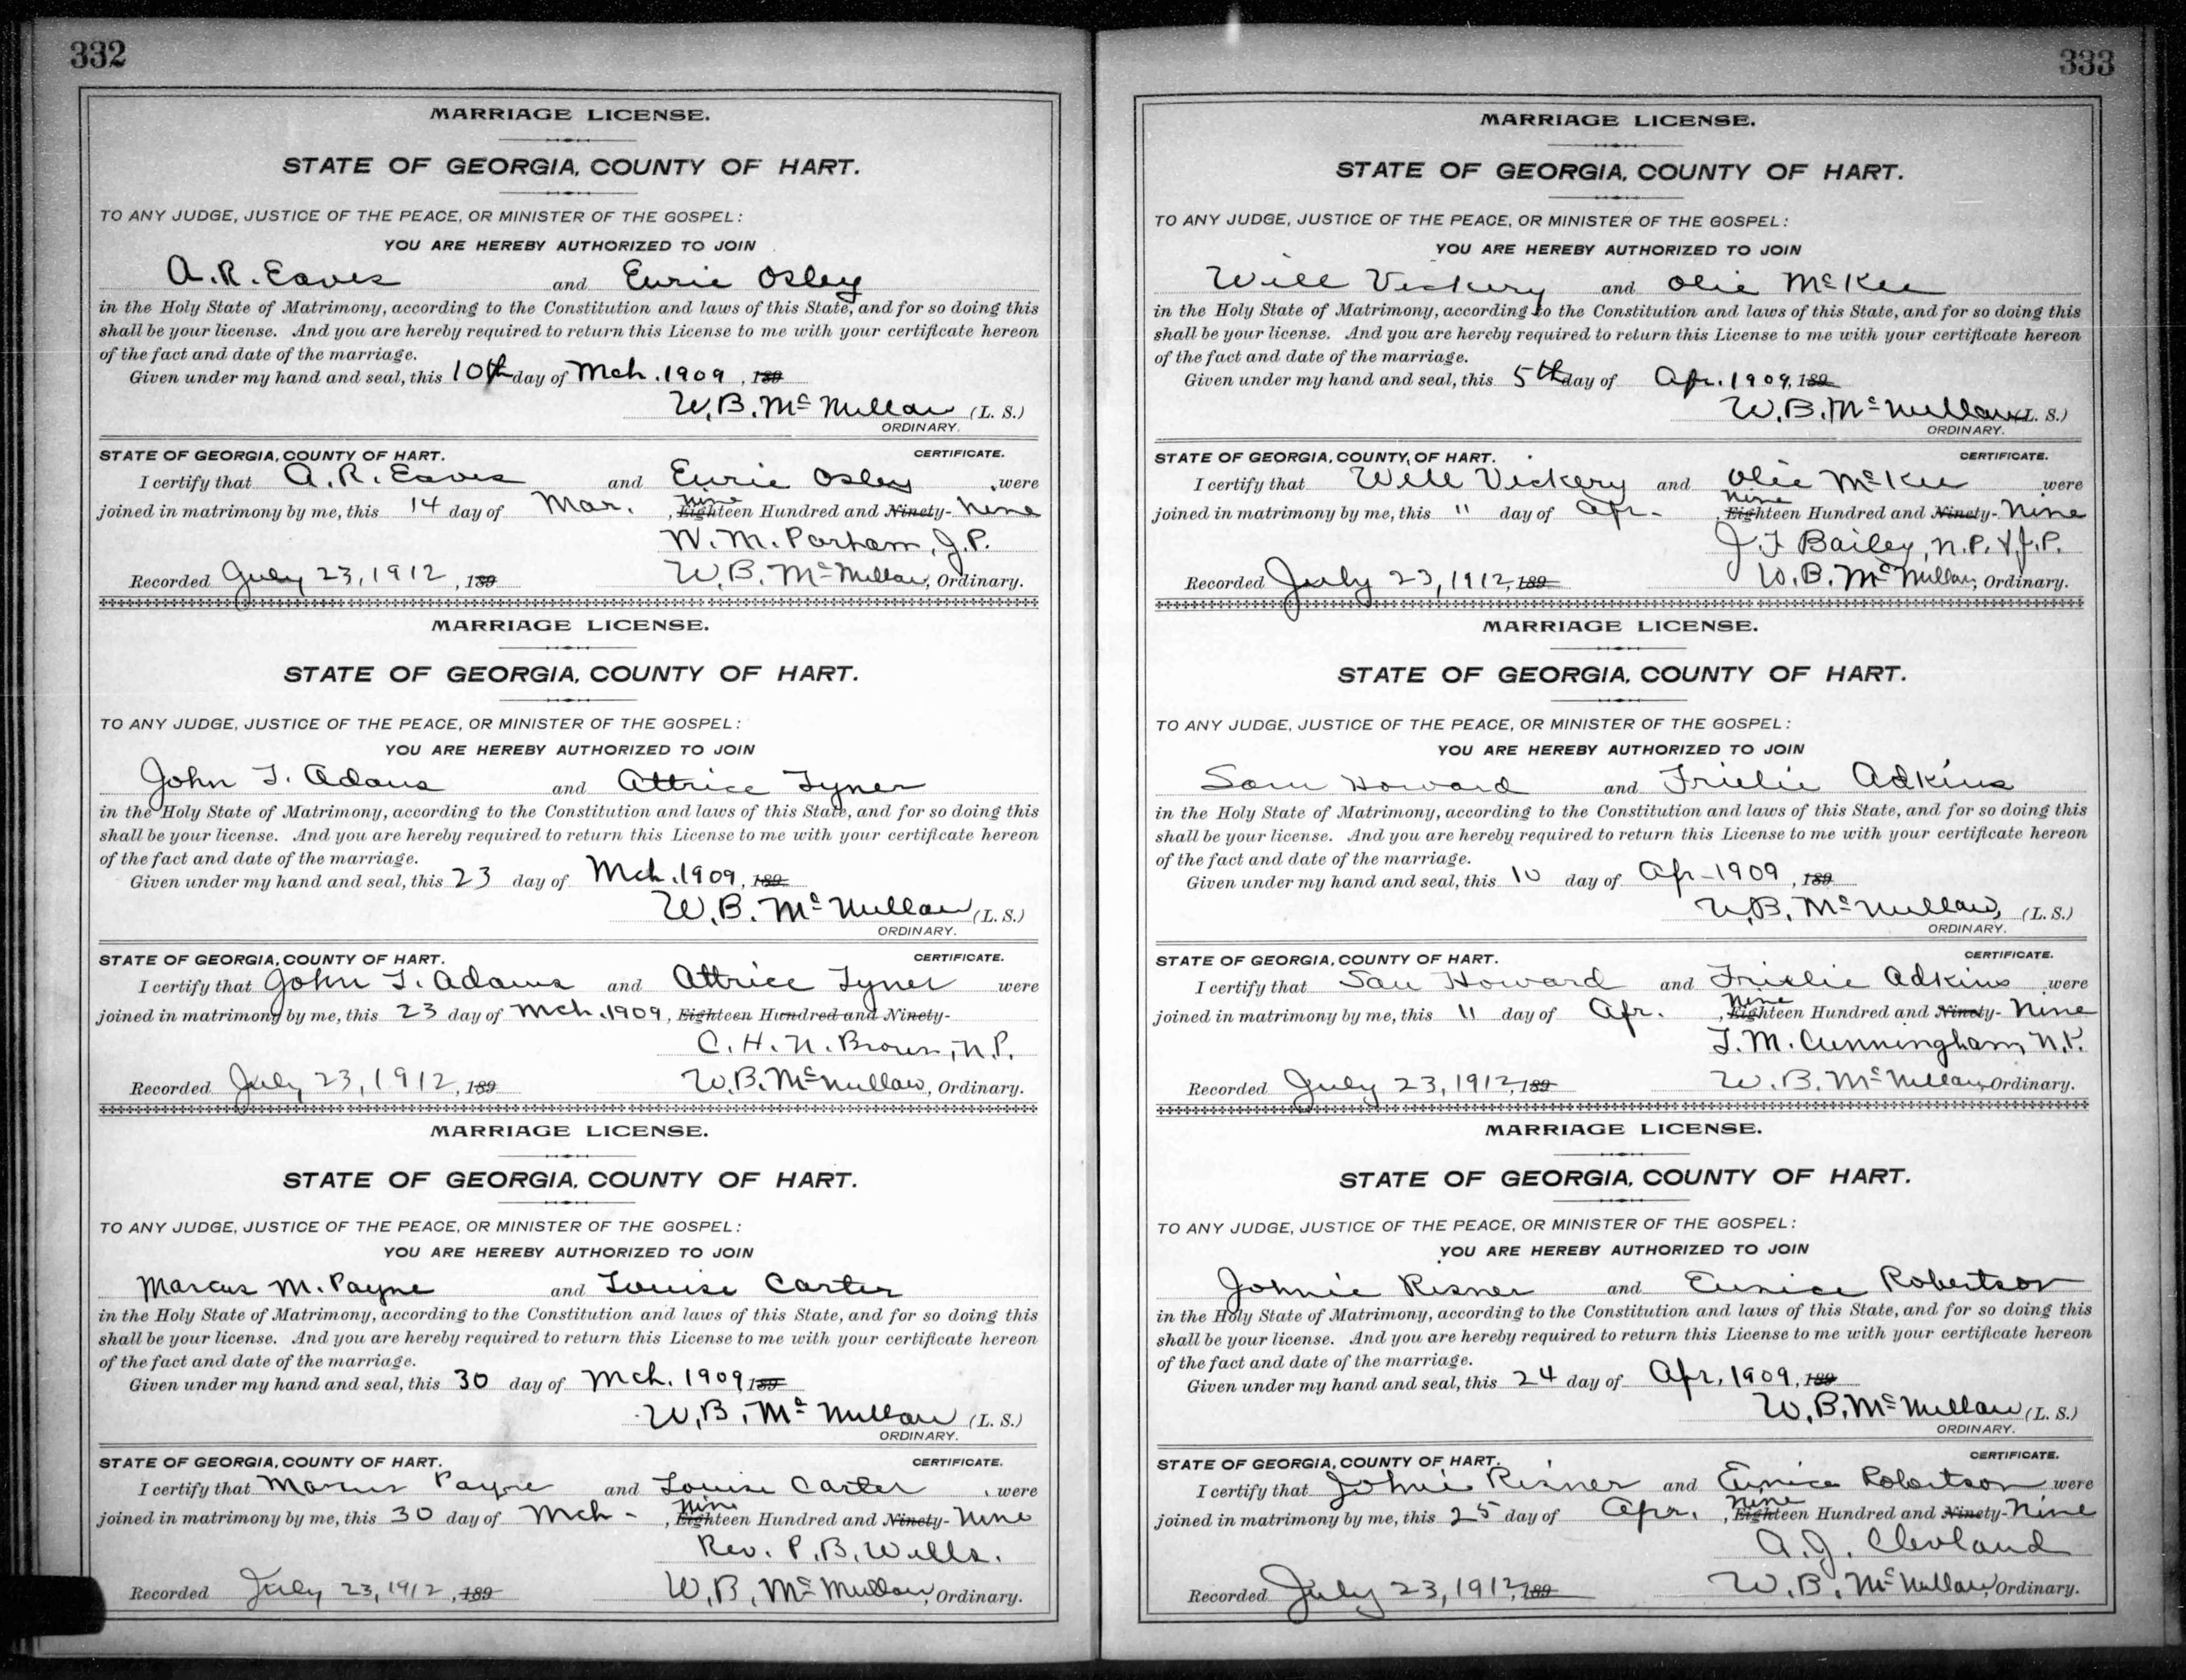 332
MARRIAGE LICENSE.
STATE OF GEORGIA, COUNTY OF HART.
TO ANY JUDGE, JUSTICE OF THE PEACE, OR MINISTER OF THE GOSPEL:
YOU ARE HEREBY AUTHORIZED TO JOIN
A. R. Eaves and Eurie Osley
in the Holy State of Matrimony, according to the Constitution and laws of this State, and for so doing this
shall be your license. And you are hereby required to return this License to me with your certificate hereon
of the fact and date of the marriage.
Given under my hand and seal, this 10th day of Mch. 1909, 189
W. B. McMullan (L. S.)
ORDINARY.
STATE OF GEORGIA, COUNTY OF HART. CERTIFICATE.
I certify that A. R. Eaves and Eurie Osley, were
joined in matrimony by me, this 14 day of Mar., Eighteen Nine Hundred and Ninety-Nine
W. M. Parham, J.P.
Recorded July 23, 1912, 189 W. B. McMullan, Ordinary.
MARRIAGE LICENSE.
STATE OF GEORGIA, COUNTY OF HART.
TO ANY JUDGE, JUSTICE OF THE PEACE, OR MINISTER OF THE GOSPEL:
YOU ARE HEREBY AUTHORIZED TO JOIN
John T. Adams and Attrice Tyner
in the Holy State of Matrimony, according to the Constitution and laws of this State, and for so doing this
shall be your license. And you are hereby required to return this License to me with your certificate hereon
of the fact and date of the marriage.
Given under my hand and seal, this 23 day of Mch. 1909, 189
W. B. McMullan (L. S.)
ORDINARY.
STATE OF GEORGIA, COUNTY OF HART. CERTIFICATE.
I certify that John T. Adams and Attrice Tyner were
joined in matrimony by me, this 23 day of Mch. 1909, Eighteen Hundred and Ninety-
C. H. N. Brown, N.P.
Recorded July 23, 1912, 189 W. B. McMullan, Ordinary.
MARRIAGE LICENSE.
STATE OF GEORGIA, COUNTY OF HART.
TO ANY JUDGE, JUSTICE OF THE PEACE, OR MINISTER OF THE GOSPEL:
YOU ARE HEREBY AUTHORIZED TO JOIN
Marcus M. Payne and Louise Carter
in the Holy State of Matrimony, according to the Constitution and laws of this State, and for so doing this
shall be your license. And you are hereby required to return this License to me with your certificate hereon
of the fact and date of the marriage.
Given under my hand and seal, this 30 day of Mch. 1909 189
W. B. McMullan (L. S.)
ORDINARY.
STATE OF GEORGIA, COUNTY OF HART. CERTIFICATE.
I certify that Marcus Payne and Louise Carter, were
joined in matrimony by me, this 30 day of Mch-, Eighteen Nine Hundred and Ninety-Nine
Rev. P. B. Wells.
Recorded July 23, 1912, 189 W. B. McMullan, Ordinary.
333
MARRIAGE LICENSE.
STATE OF GEORGIA, COUNTY OF HART.
TO ANY JUDGE, JUSTICE OF THE PEACE, OR MINISTER OF THE GOSPEL:
YOU ARE HEREBY AUTHORIZED TO JOIN
Will Vickery and Olie McKee
in the Holy State of Matrimony, according to the Constitution and laws of this State, and for so doing this
shall be your license. And you are hereby required to return this License to me with your certificate hereon
of the fact and date of the marriage.
Given under my hand and seal, this 5th day of Apr. 1909, 189
W. B. McMullan (L. S.)
ORDINARY.
STATE OF GEORGIA, COUNTY, OF HART. CERTIFICATE.
I certify that Will Vickery and Olie McKee were
joined in matrimony by me, this 11 day of Apr-, Eighteen Nine Hundred and Ninety-Nine
J. T. Bailey, N.P. & J.P.
Recorded July 23, 1912, 189 W. B. McMullan, Ordinary.
MARRIAGE LICENSE.
STATE OF GEORGIA, COUNTY OF HART.
TO ANY JUDGE, JUSTICE OF THE PEACE, OR MINISTER OF THE GOSPEL:
YOU ARE HEREBY AUTHORIZED TO JOIN
Sam Howard and Adkins
in the Holy State of Matrimony, according to the Constitution and laws of this State, and for so doing this
shall be your license. And you are hereby required to return this License to me with your certificate hereon
of the fact and date of the marriage.
Given under my hand and seal, this 10 day of Apr-1909, 189
W. B. McMullan, (L. S.)
ORDINARY.
STATE OF GEORGIA, COUNTY OF HART. CERTIFICATE.
I certify that Sam Howard and Adkins were
joined in matrimony by me, this 11 day of Apr., Eighteen Nine Hundred and Ninety-Nine
T. M. Cunningham, N.P.
Recorded July 23, 1912, 189 W. B. McMullan, Ordinary.
MARRIAGE LICENSE.
STATE OF GEORGIA, COUNTY OF HART.
TO ANY JUDGE, JUSTICE OF THE PEACE, OR MINISTER OF THE GOSPEL:
YOU ARE HEREBY AUTHORIZED TO JOIN
Johnie Risner and Eunice Robertson
in the Holy State of Matrimony, according to the Constitution and laws of this State, and for so doing this
shall be your license. And you are hereby required to return this License to me with your certificate hereon
of the fact and date of the marriage.
Given under my hand and seal, this 24 day of Apr, 1909, 189
W. B. McMullan (L. S.)
ORDINARY.
STATE OF GEORGIA, COUNTY OF HART. CERTIFICATE.
I certify that Johnie Risner and Eunice Robertson were
joined in matrimony by me, this 25 day of Apr., Eighteen Nine Hundred and Ninety-Nine
A. J. Clevland
Recorded July 23, 1912, 189 W. B. McMullan, Ordinary.